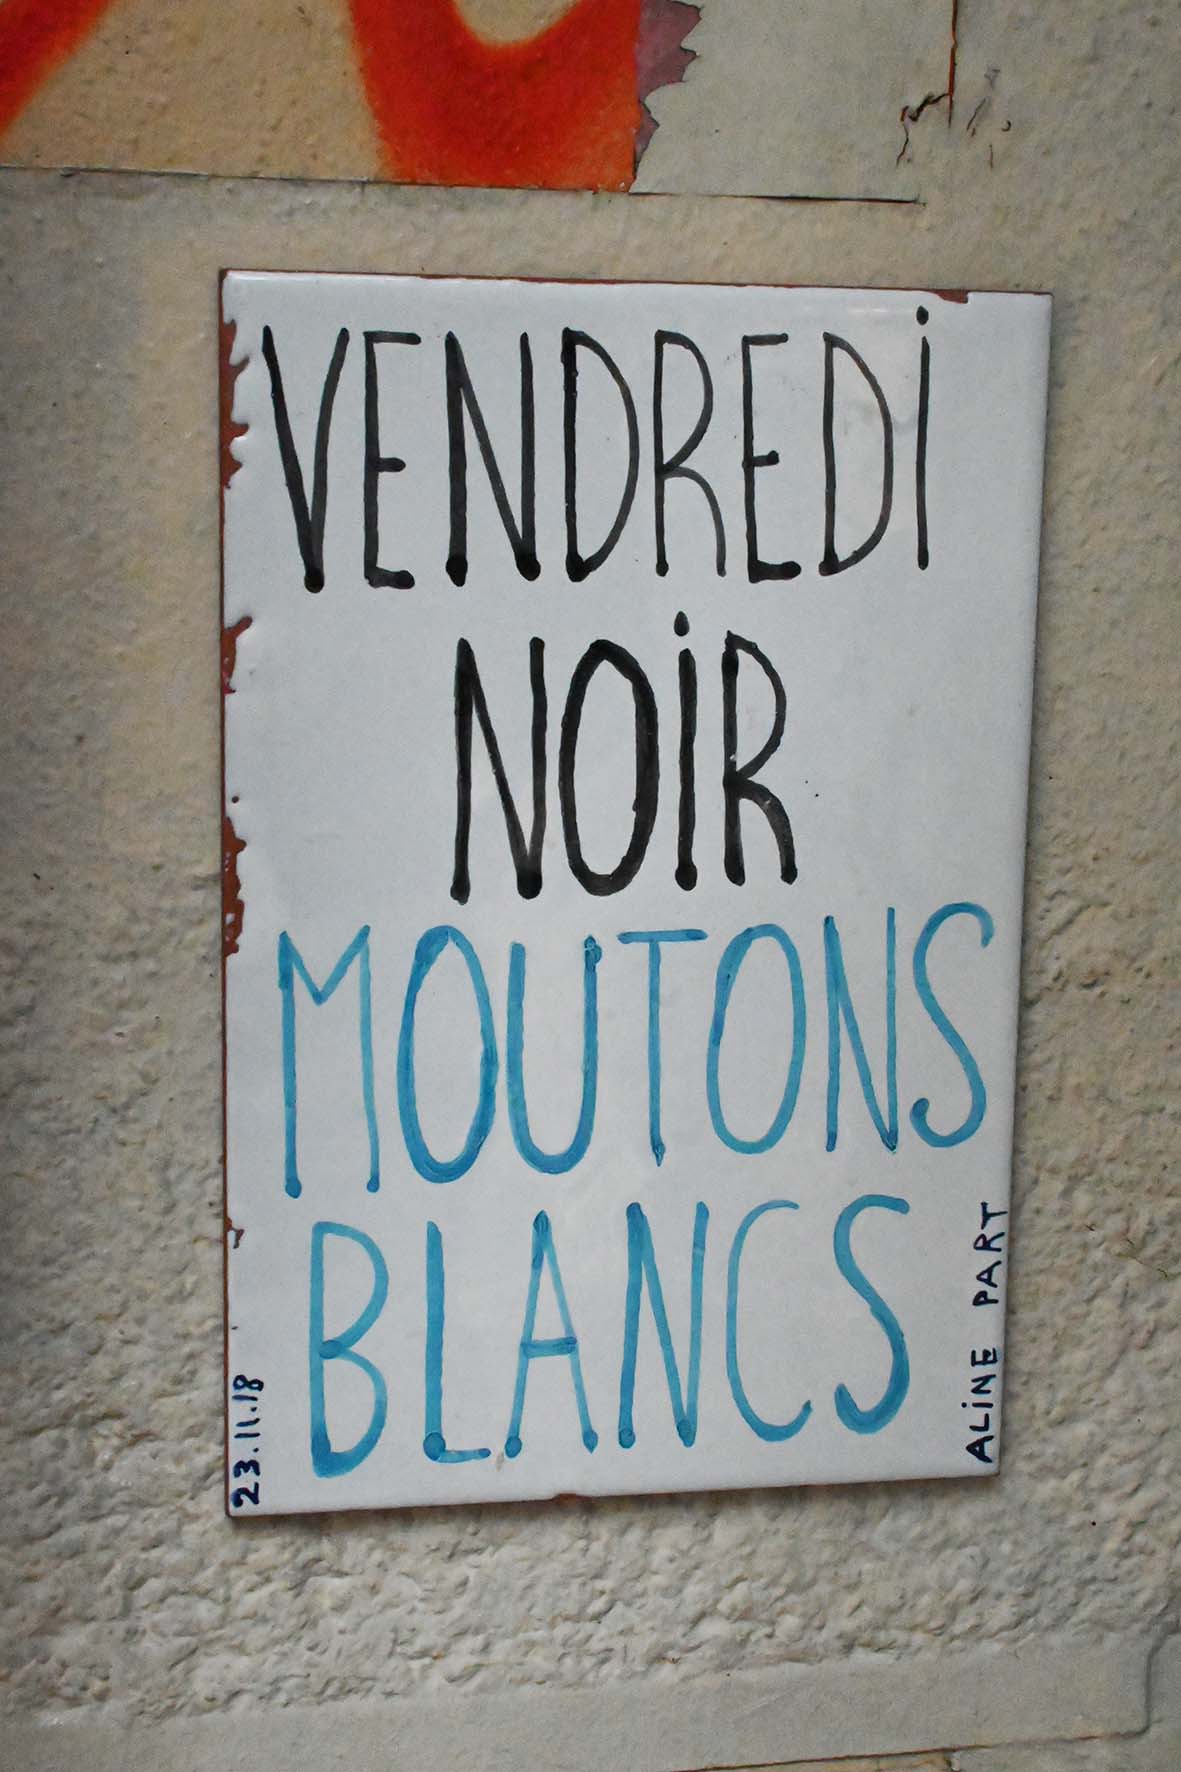 VENDREDi
NOiR
MOUTONS
BLANCS
23.11.18
ALiNE PART